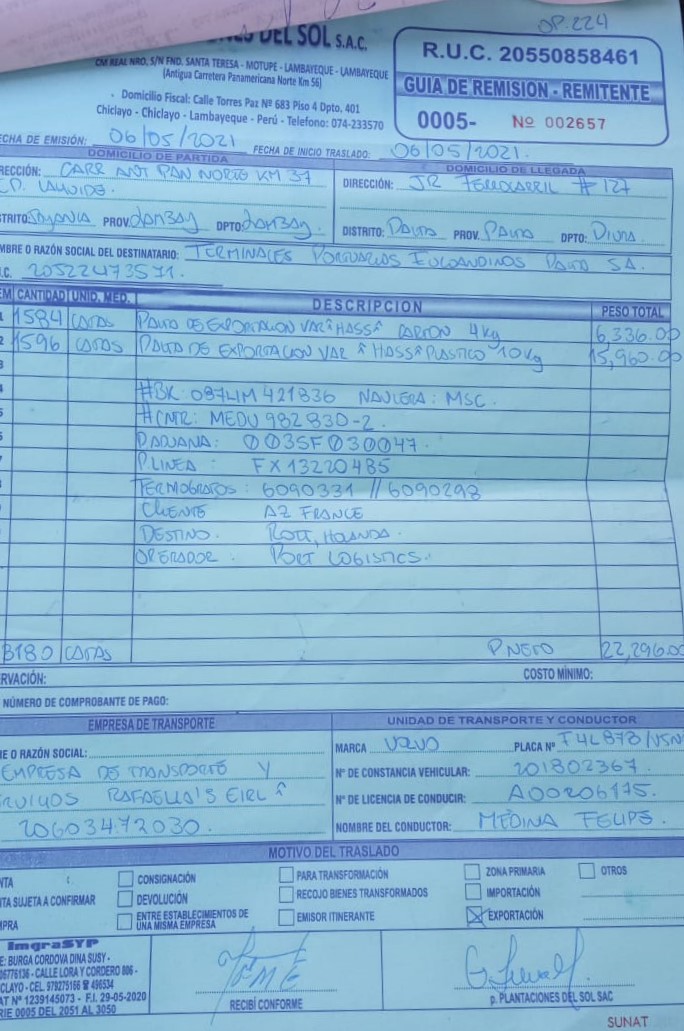 OP. 224
DEL SOL S.A.C.
CM REAL NRO. S/N FND. SANTA TERESA - MOTUPE - LAMBAYEQUE - LAMBAYEQUE
(Antigua Carretera Panamericana Norte Km 56)
Domicilio Fiscal: Calle Torres Paz Nº 683 Piso 4 Dpto. 401
Chiclayo - Chiclayo - Lambayeque - Perú - Telefono: 074-233570
R.U.C. 20550858461
GUIA DE REMISION - REMITENTE
0005- Nº 002657
ECHA DE EMISIÓN: 06/05/2021 FECHA DE INICIO TRASLADO: 06/05/2021.
DOMICILIO DE PARTIDA
RECCIÓN: CARR ANT PAN NORTE KM 37
STRITO: PROV. DPTO:
DOMICILIO DE LLEGADA
DIRECCIÓN: JR FERROCARRIL # 127
DISTRITO: PAITA PROV. PAITA DPTO: PIURA
MBRE O RAZÓN SOCIAL DEL DESTINATARIO: TERMINALES PORTUARIOS EUROANDINOS PAITA SA.
.C. 20522473571.
EM CANTIDAD UNID. MED. DESCRIPCION PESO TOTAL
1584 CAJAS PALTA DE EXPORTACION VAR "HASS" CARTON 4Kg 6,336.00
2 1596 CAJAS PALTA DE EXPORTACION VAR "HASS" PLASTICO 10Kg 15,960.00
3
4 #BK: 087LIM421836 NAVIERA: MSC.
5 #CNTR: MEDU 982830-2.
P.ADUANA: 0035F030047.
P.LINEA: FX13220485
TERMOGRAFOS: 6090331 // 6090298
CLIENTE AZ FRANCE
DESTINO. ROTT, HOLANDA.
OPERADOR. PORT LOGISTICS.
3180 CAJAS P.NETO 22,296.00
RVACIÓN: COSTO MÍNIMO:
NÚMERO DE COMPROBANTE DE PAGO:
EMPRESA DE TRANSPORTE
E O RAZÓN SOCIAL:
EMPRESA DE TRANSPORTE Y
RAFAELLA'S EIRL
20603472030.
UNIDAD DE TRANSPORTE Y CONDUCTOR
MARCA VOLVO PLACA Nº
Nº DE CONSTANCIA VEHICULAR: 201802367.
Nº DE LICENCIA DE CONDUCIR: A00206175.
NOMBRE DEL CONDUCTOR: MEDINA FELIPE.
MOTIVO DEL TRASLADO
NTA CONSIGNACIÓN PARA TRANSFORMACIÓN ZONA PRIMARIA OTROS
TA SUJETA A CONFIRMAR DEVOLUCIÓN RECOJO BIENES TRANSFORMADOS IMPORTACIÓN
MPRA ENTRE ESTABLECIMIENTOS DE UNA MISMA EMPRESA EMISOR ITINERANTE EXPORTACIÓN
ImgraSYP
E: BURGA CORDOVA DINA SUSY -
06776136 - CALLE LORA Y CORDERO 806 -
CLAYO - CEL 978275166 ☎ 496534
AT Nº 1239145073 - F.I. 29-05-2020
RIE 0005 DEL 2051 AL 3050
RECIBÍ CONFORME
p. PLANTACIONES DEL SOL SAC
SUNAT